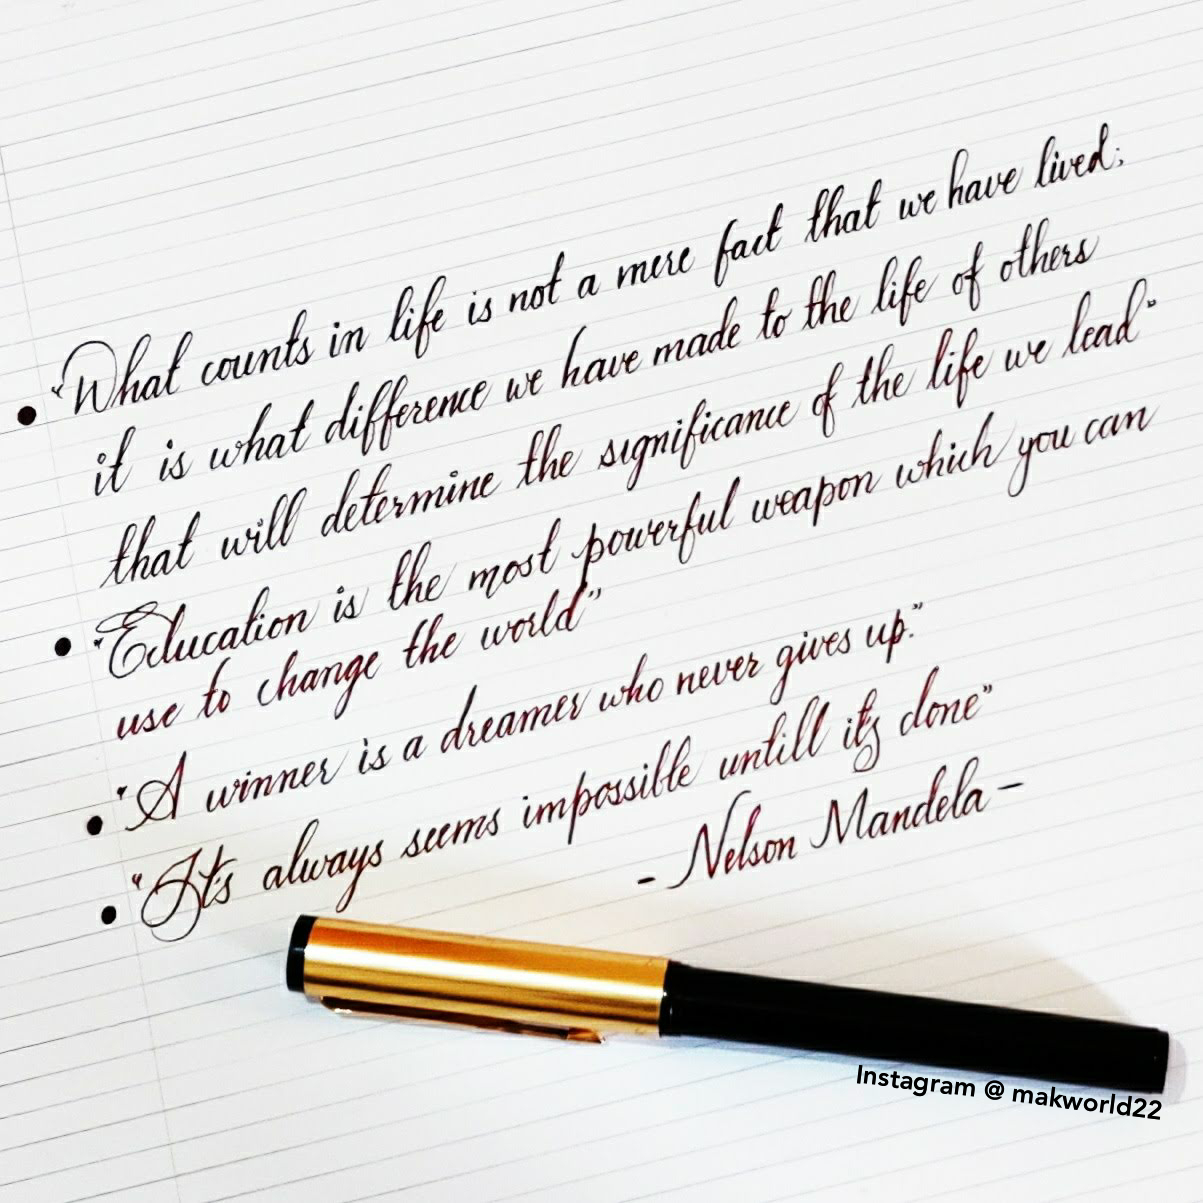 • "What counts in life is not a mere fact that we have lived;
it is what difference we have made to the life of others
that will determine the significance of the life we lead"
• "Education is the most powerful weapon which you can
use to change the world"
• "A winner is a dreamer who never gives up."
• "It's always seems impossible untill itz done"
- Nelson Mandela -
Instagram @ makworld22